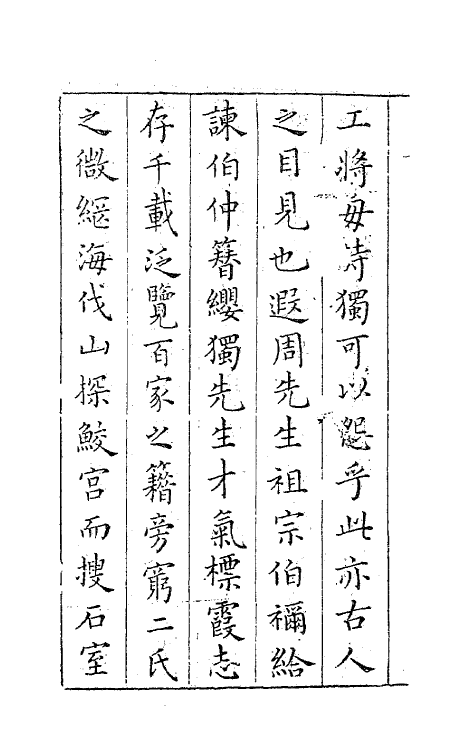 工將毎詩獨可以怨乎此亦古人
之目見也遐周先生祖宗伯禰給
諫伯仲簪纓獨先生才氣標霞志
存千載泛覽百家之籍旁窮二氏
之微緪海伐山探鮫宫而搜石室